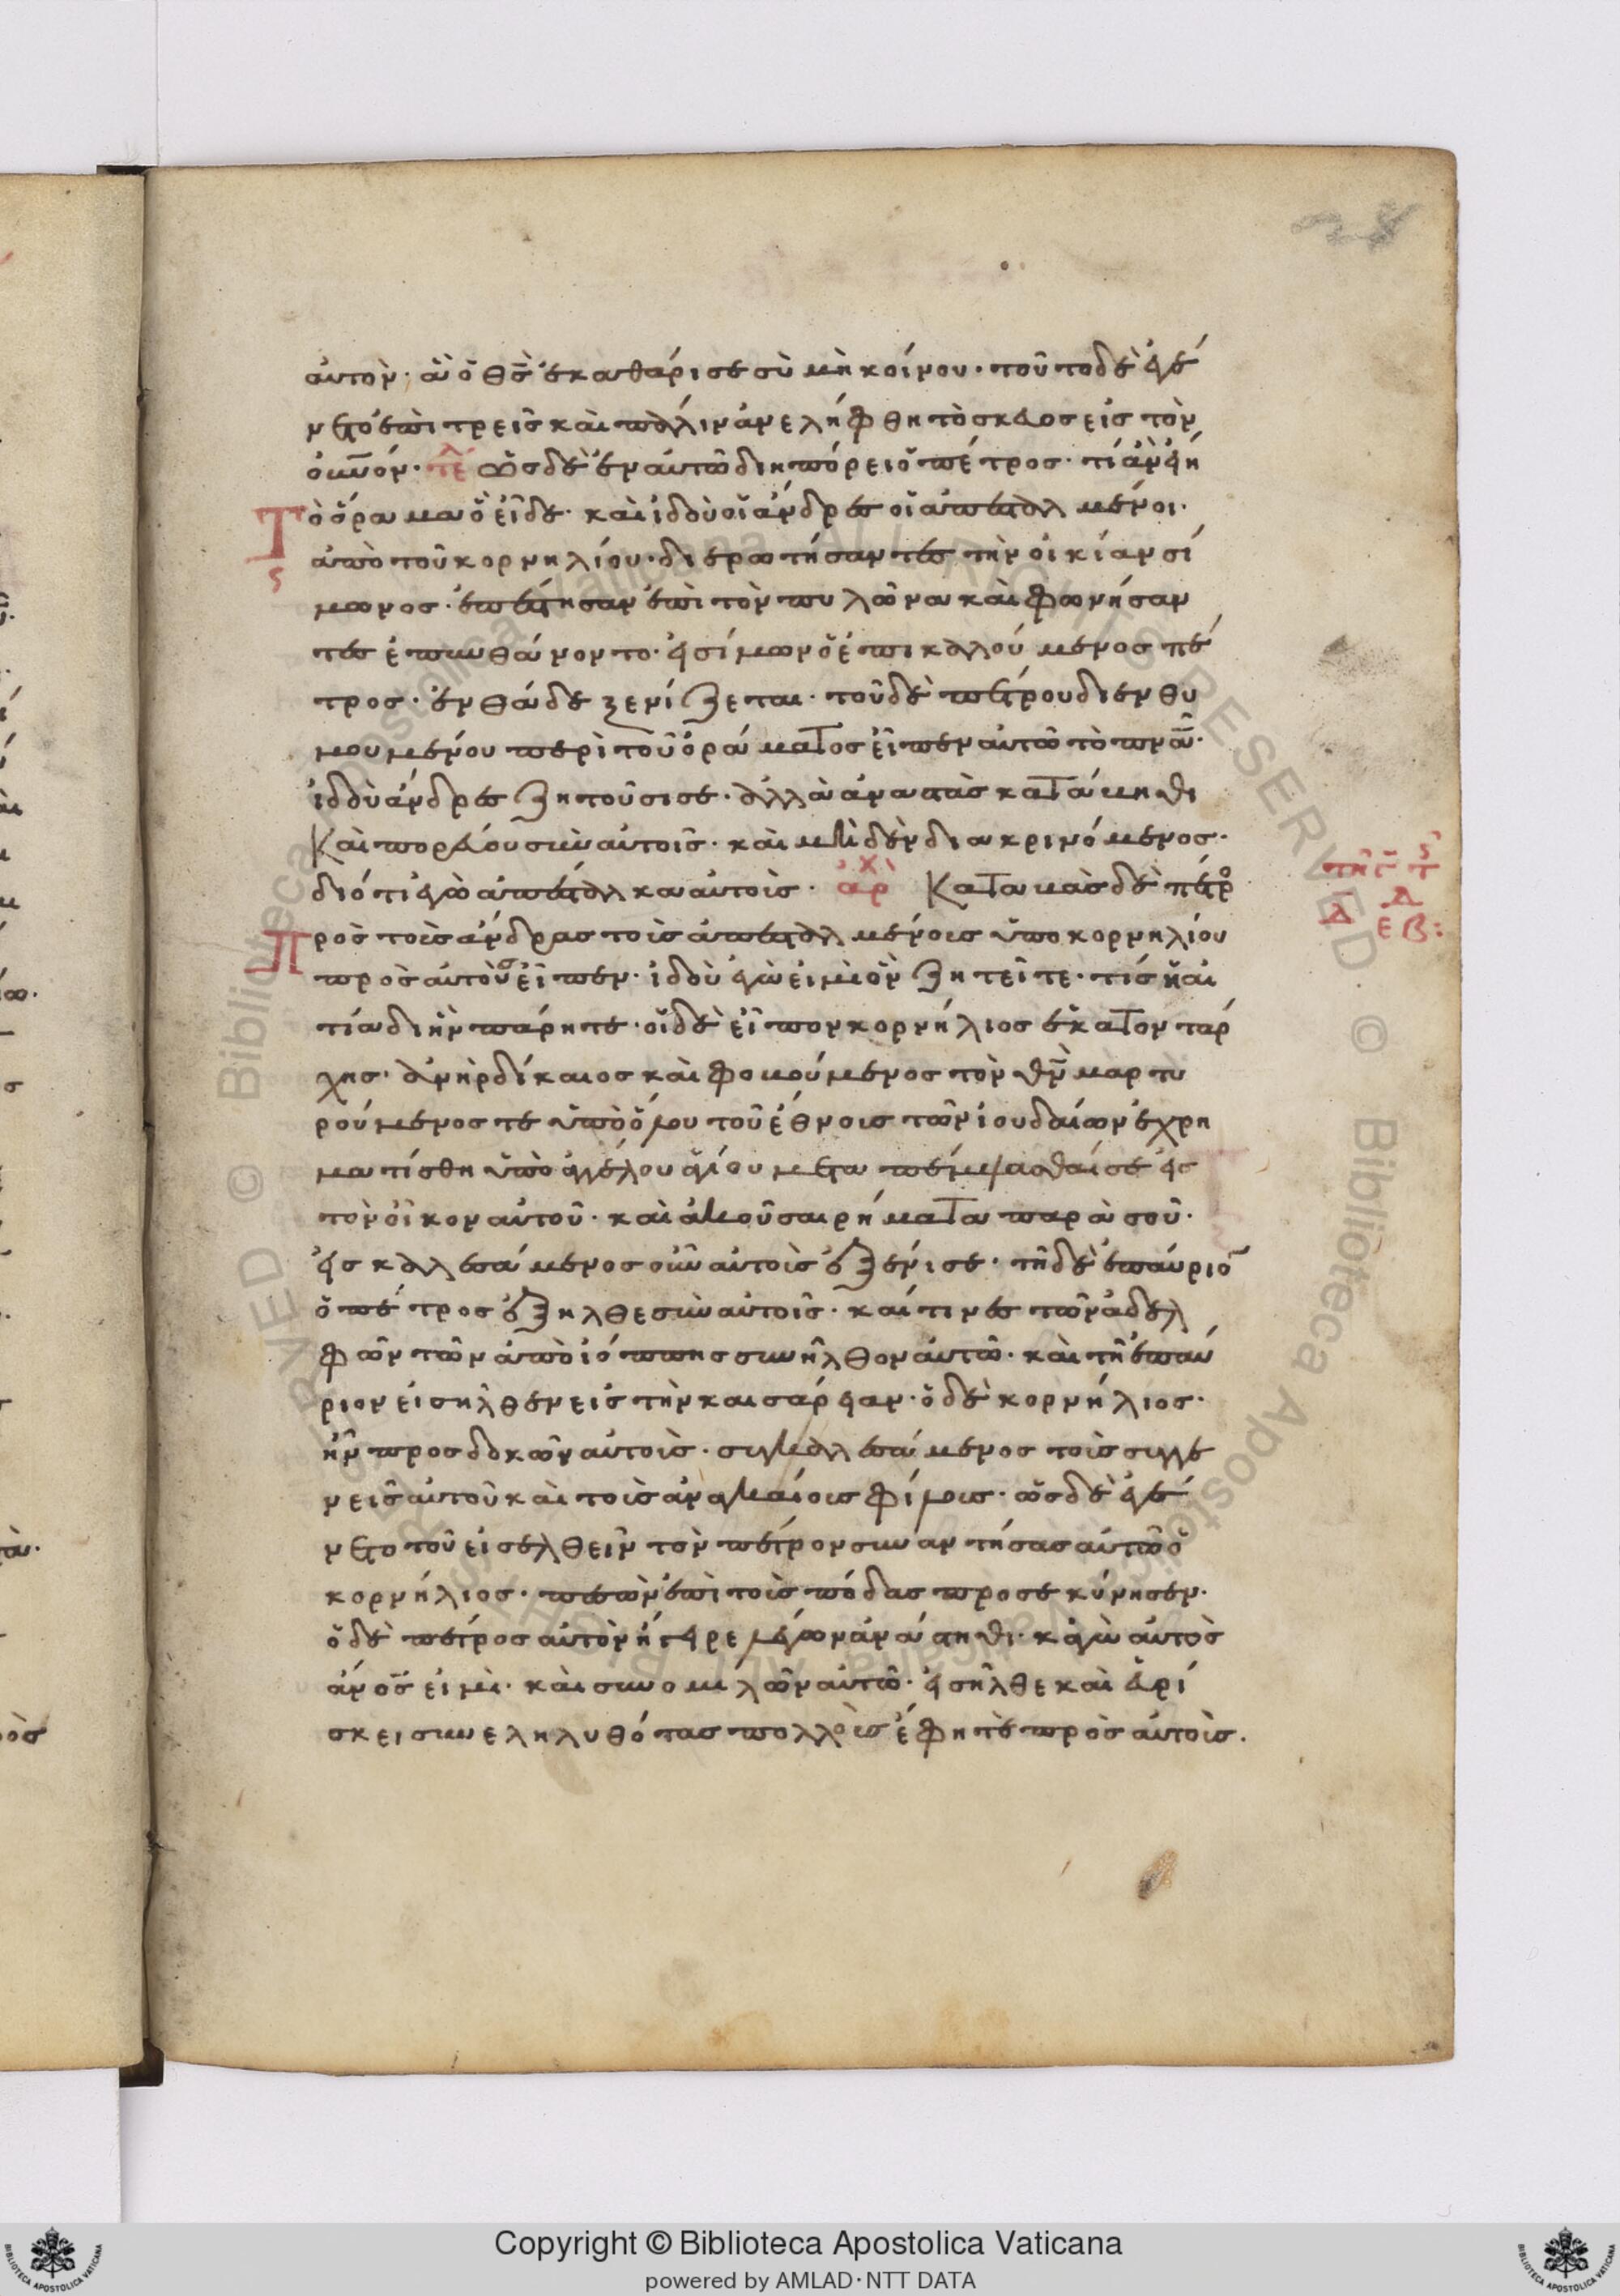 αυτον· ἃ ὁ θς ἐκαθάρισε σὺ μὴ κοίνου· τοῦτο δὲ ἐγέ
νετο ἐπὶ τρεῖς καὶ πάλιν ἀνελήφθη τὸ σκεῦος εἰς τὸν
οὐνον· τε ὡς δὲ ἐν αὐτῶ διηπόρει ὁ πέτρος· τί ἂν εἴη
Τὸ ὅραμα ὃ εἶδε· καὶ ἰδοὺ οἱ ἄνδρες οἱ ἀπεσταλμένοι·
ς
ἀπὸ τοῦ κορνηλίου· διερωτήσαντες τὴν οἰκίαν σί
μωνος· ἐπέστησαν ἐπὶ τὸν πυλῶνα καὶ φωνήσαν
τες ἐπυνθάνοντο· εἰ σίμων ὁ ἐπικαλούμενος πέ
τρος· ἐνθάδε ξενίζεται· τοῦ δὲ πέτρου διενθυ
μουμένου περὶ τοῦ ὁράματος εἶπεν αὐτῶ τὸ πνα·
ἰδοὺ ἄνδρες ζητοῦσι σε· ἀλλὰ ἀναστὰς κατάβηθι
Καὶ πορεύου σὺν αὐτοῖς· καὶ μηδὲν διακρινόμενος·
διότι ἐγὼ ἀπέσταλκα αὐτοὺς· ἀρχ Καταβὰς δὲ πέτρο
Προς τοὺς ἄνδρας τοὺς ἀπεσταλμένους ὑπο κορνηλίου
πρὸς αὐτοὺς εἶπεν· ἰδοὺ ἐγὼ εἰμι ὃν ζητεῖτε· τίς ἡ αἰ
τία δι ἣν πάρηστε· οἱ δὲ εἶπον κορνήλιος ἑκατοντάρ
χης· ἀνὴρ δίκαιος καὶ φοβούμενος τὸν θν μαρτυ
ρούμενος τε ὑπὸ ὅλου τοῦ ἔθνους τῶν ἰουδαίων ἐχρη
ματίσθη ὑπὸ ἀγγέλου ἁγίου μεταπέμψασθαί σε εἰς
τὸν οἶκον αὐτοῦ· καὶ ἀκοῦσαι ρήματα παρὰ σοῦ·
εἰσκαλεσάμενος οὖν αὐτοὺς ἐξένισε· τῆ δὲ ἐπαύριο
ὁ πέτρος ἐξηλθε σὺν αὐτοῖς· καί τινες τῶν ἀδελ
φῶν τῶν ἀπὸ ἰόππης συνῆλθον αὐτῶ· καὶ τῆ ἐπαύ
ριον εἰσηλθεν εἰς τὴν καισάρειαν· ὁ δὲ κορνήλιος·
ἦν προσδοκῶν αὐτοὺς· συγκαλεσάμενος τοὺς συγγε
νεῖς αὐτοῦ καὶ τοὺς ἀναγκαίους φίλους· ὡς δὲ ἐγέ
νετο τοῦ εἰσελθεῖν τὸν πέτρον συναντήσας αὐτῶ ὁ
κορνήλιος· πεσὼν ἐπὶ τοὺς πόδας προσεκύνησεν·
ὁ δὲ πέτρος αὐτὸν ἤγειρε λέγων ἀνάστηθι· κἀγὼ αὐτὸς
ἄνος εἰμὶ· καὶ συνομιλῶν αὐτῶ· εἰσῆλθε καὶ εὑρί
σκει συνεληλυθότας πολλοὺς ἔφη τε πρὸς αὐτοὺς.